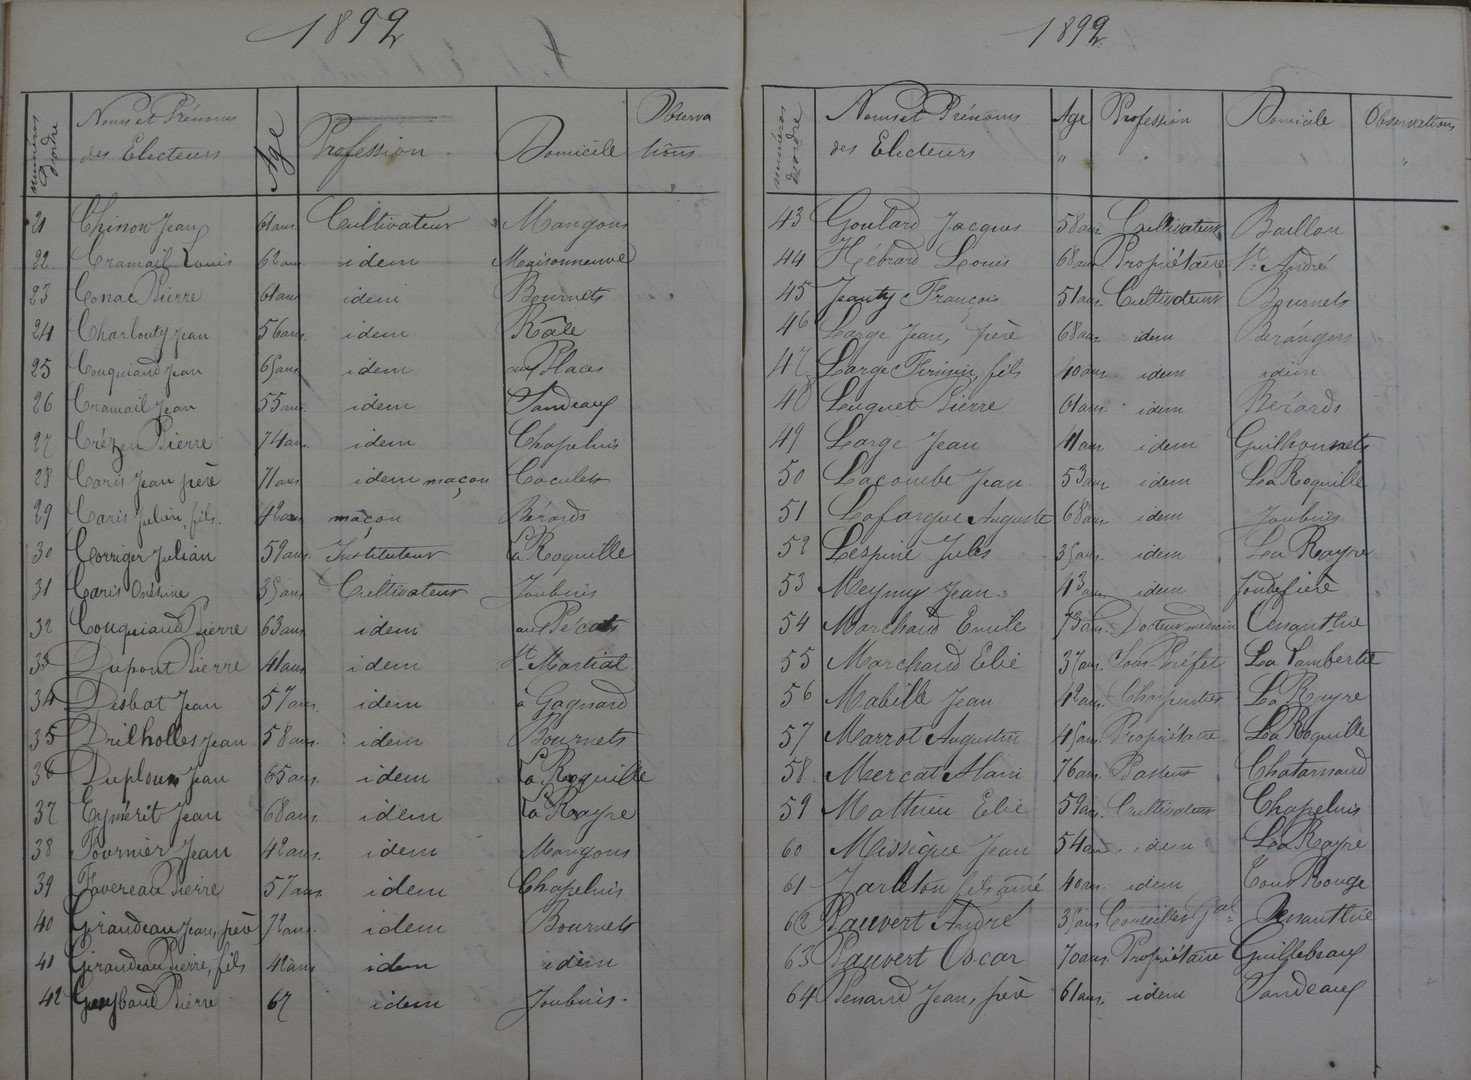 1892
numéros d'ordre Noms et Prénoms des Electeurs Age Profession Domicile Observations
21 Chinon Jean 61 ans Cultivateur Mangons
22 Cramail Louis 62 ans idem Maisonneuve
23 Conac Pierre 61 ans idem Bournets
24 Charlouty Jean 56 ans idem Râle
25 Couquiaud Jean 65 ans idem aux Places
26 Cramail Jean 55 ans idem Sandeaux
27 Pierre 74 ans idem Chapeluis
28 Caris Jean père 71 ans idem maçon Coculets
29 Caris Julien, fils 42 ans maçon Bérards
30 Corriger Julian 59 ans Instituteur La Roquille
31 Caris Onésime 35 ans Cultivateur Joubnis
32 Couquiaud Pierre 63 ans idem aux
33 Dupont Pierre 41 ans idem St Martial
34 Disbat Jean 57 ans idem à Gagnard
35 Drilholles Jean 58 ans idem Bournets
36 Jean 65 ans idem La Roquille
37 Eymérit Jean 68 ans idem La Rayre
38 Fournier Jean 42 ans idem Mangons
39 Favereau Pierre 57 ans idem Chapeluis
40 Giraudeau Jean, père 72 ans idem Bournets
41 Giraudeau Pierre, fils 42 ans idem idem
42 Pierre 67 idem Joubnis
1892
numéros d'ordre Noms et Prénoms des Electeurs Age " Profession " Domicile " Observations "
43 Goulard Jacques 58 ans Cultivateur Baillon
44 Hébrard Louis 68 ans Propriétaire St André
45 Jeanty François 51 ans Cultivateur Bournets
46 Large Jean, père 68 ans idem Berangers
47 Large Firmin, fils 40 ans idem idem
48 Luquet Pierre 61 ans idem Bérards
49 Large Jean 41 ans idem Guilhonnets
50 Lacombe Jean 53 ans idem La Roquille
51 Lafargue Auguste 68 ans idem Joubnis
52 Lespine Jules 35 ans idem La Rayre
53 Meymy Jean 43 ans idem
54 Marchand Emile 73 ans Docteur médecin
55 Marchand Elie 37 ans Sous Préfet La Lambertie
56 Mabille Jean 42 ans Charpentier La Rayre
57 Marrot Augustin 45 ans Propriétaire La Roquille
58 Mercat 76 ans Pasteur Chatarnaud
59 Mathieu Elie 59 ans Cultivateur Chapeluis
60 Missègue Jean 54 ans idem La Rayre
61 fils aîné 40 ans idem Tour Rouge
62 Pauvert André 35 ans Conseiller Gal
63 Pauvert Oscar 70 ans Propriétaire Guillebeaux
64 Penaud Jean, père 61 ans idem Sandeaux